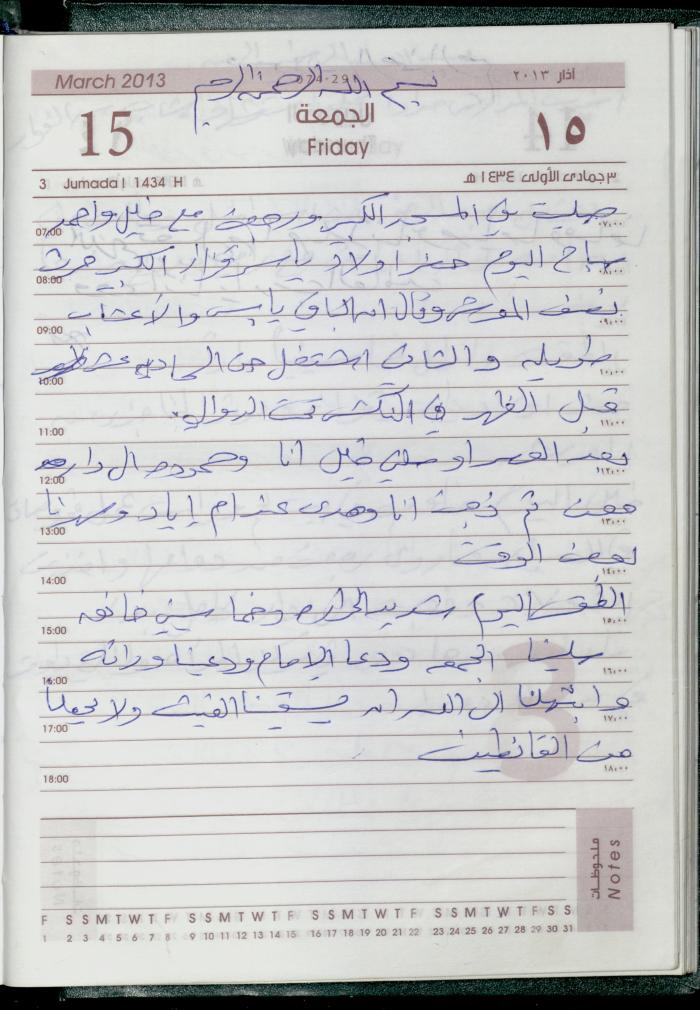 March 2013
074-291
آذار ٢٠١٣
بسم الله الرحمن الرحيم
15
الجمعة
Friday
١٥
3 Jumada I 1434 H
٣ جمادى الأولى ١٤٣٤ هـ
صليت في المسجد الكبير ورجعت مع خليل واحمد
07:00 ٠٧:٠٠
صباح اليوم حضر اولاد ياسر الكبير حرث
08:00 ٠٨:٠٠
نصف وقال انه الباقي يابس والاعشاب
09:00 ٠٩:٠٠
طويله والثاني اشتغل من الحاديه عشر
10:00 ١٠:٠٠
قبل الظهر في تحت الدوالي.
11:00 ١١:٠٠
بعد العصر خليل انا ومحمود ال دار
12:00 ١٢:٠٠
معن ثم ذهبت انا وهدى عند ام إياد وسهرنا
13:00 ١٣:٠٠
لبعض الوقت
14:00 ١٤:٠٠
الطقس اليوم شديد الحراره وخماسيني خانقه
15:00 ١٥:٠٠
صلينا الجمعه ودعا الإمام ودعينا ورائه
16:00 ١٦:٠٠
وابتهلنا ال الله ان يسقينا الغيث ولا يجعلنا
17:00 ١٧:٠٠
من القانطين
18:00 ١٨:٠٠
3
ملحوظات
Notes
F S S M T W T F S S M T W T F S S M T W T F S S M T W T F S S
1 2 3 4 5 6 7 8 9 10 11 12 13 14 15 16 17 18 19 20 21 22 23 24 25 26 27 28 29 30 31